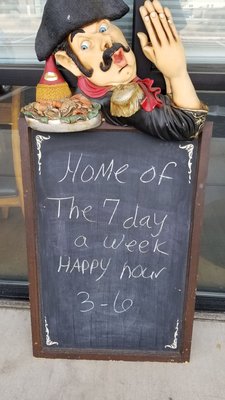 Home of
The 7 day
a week
HAPPY hour
3-6